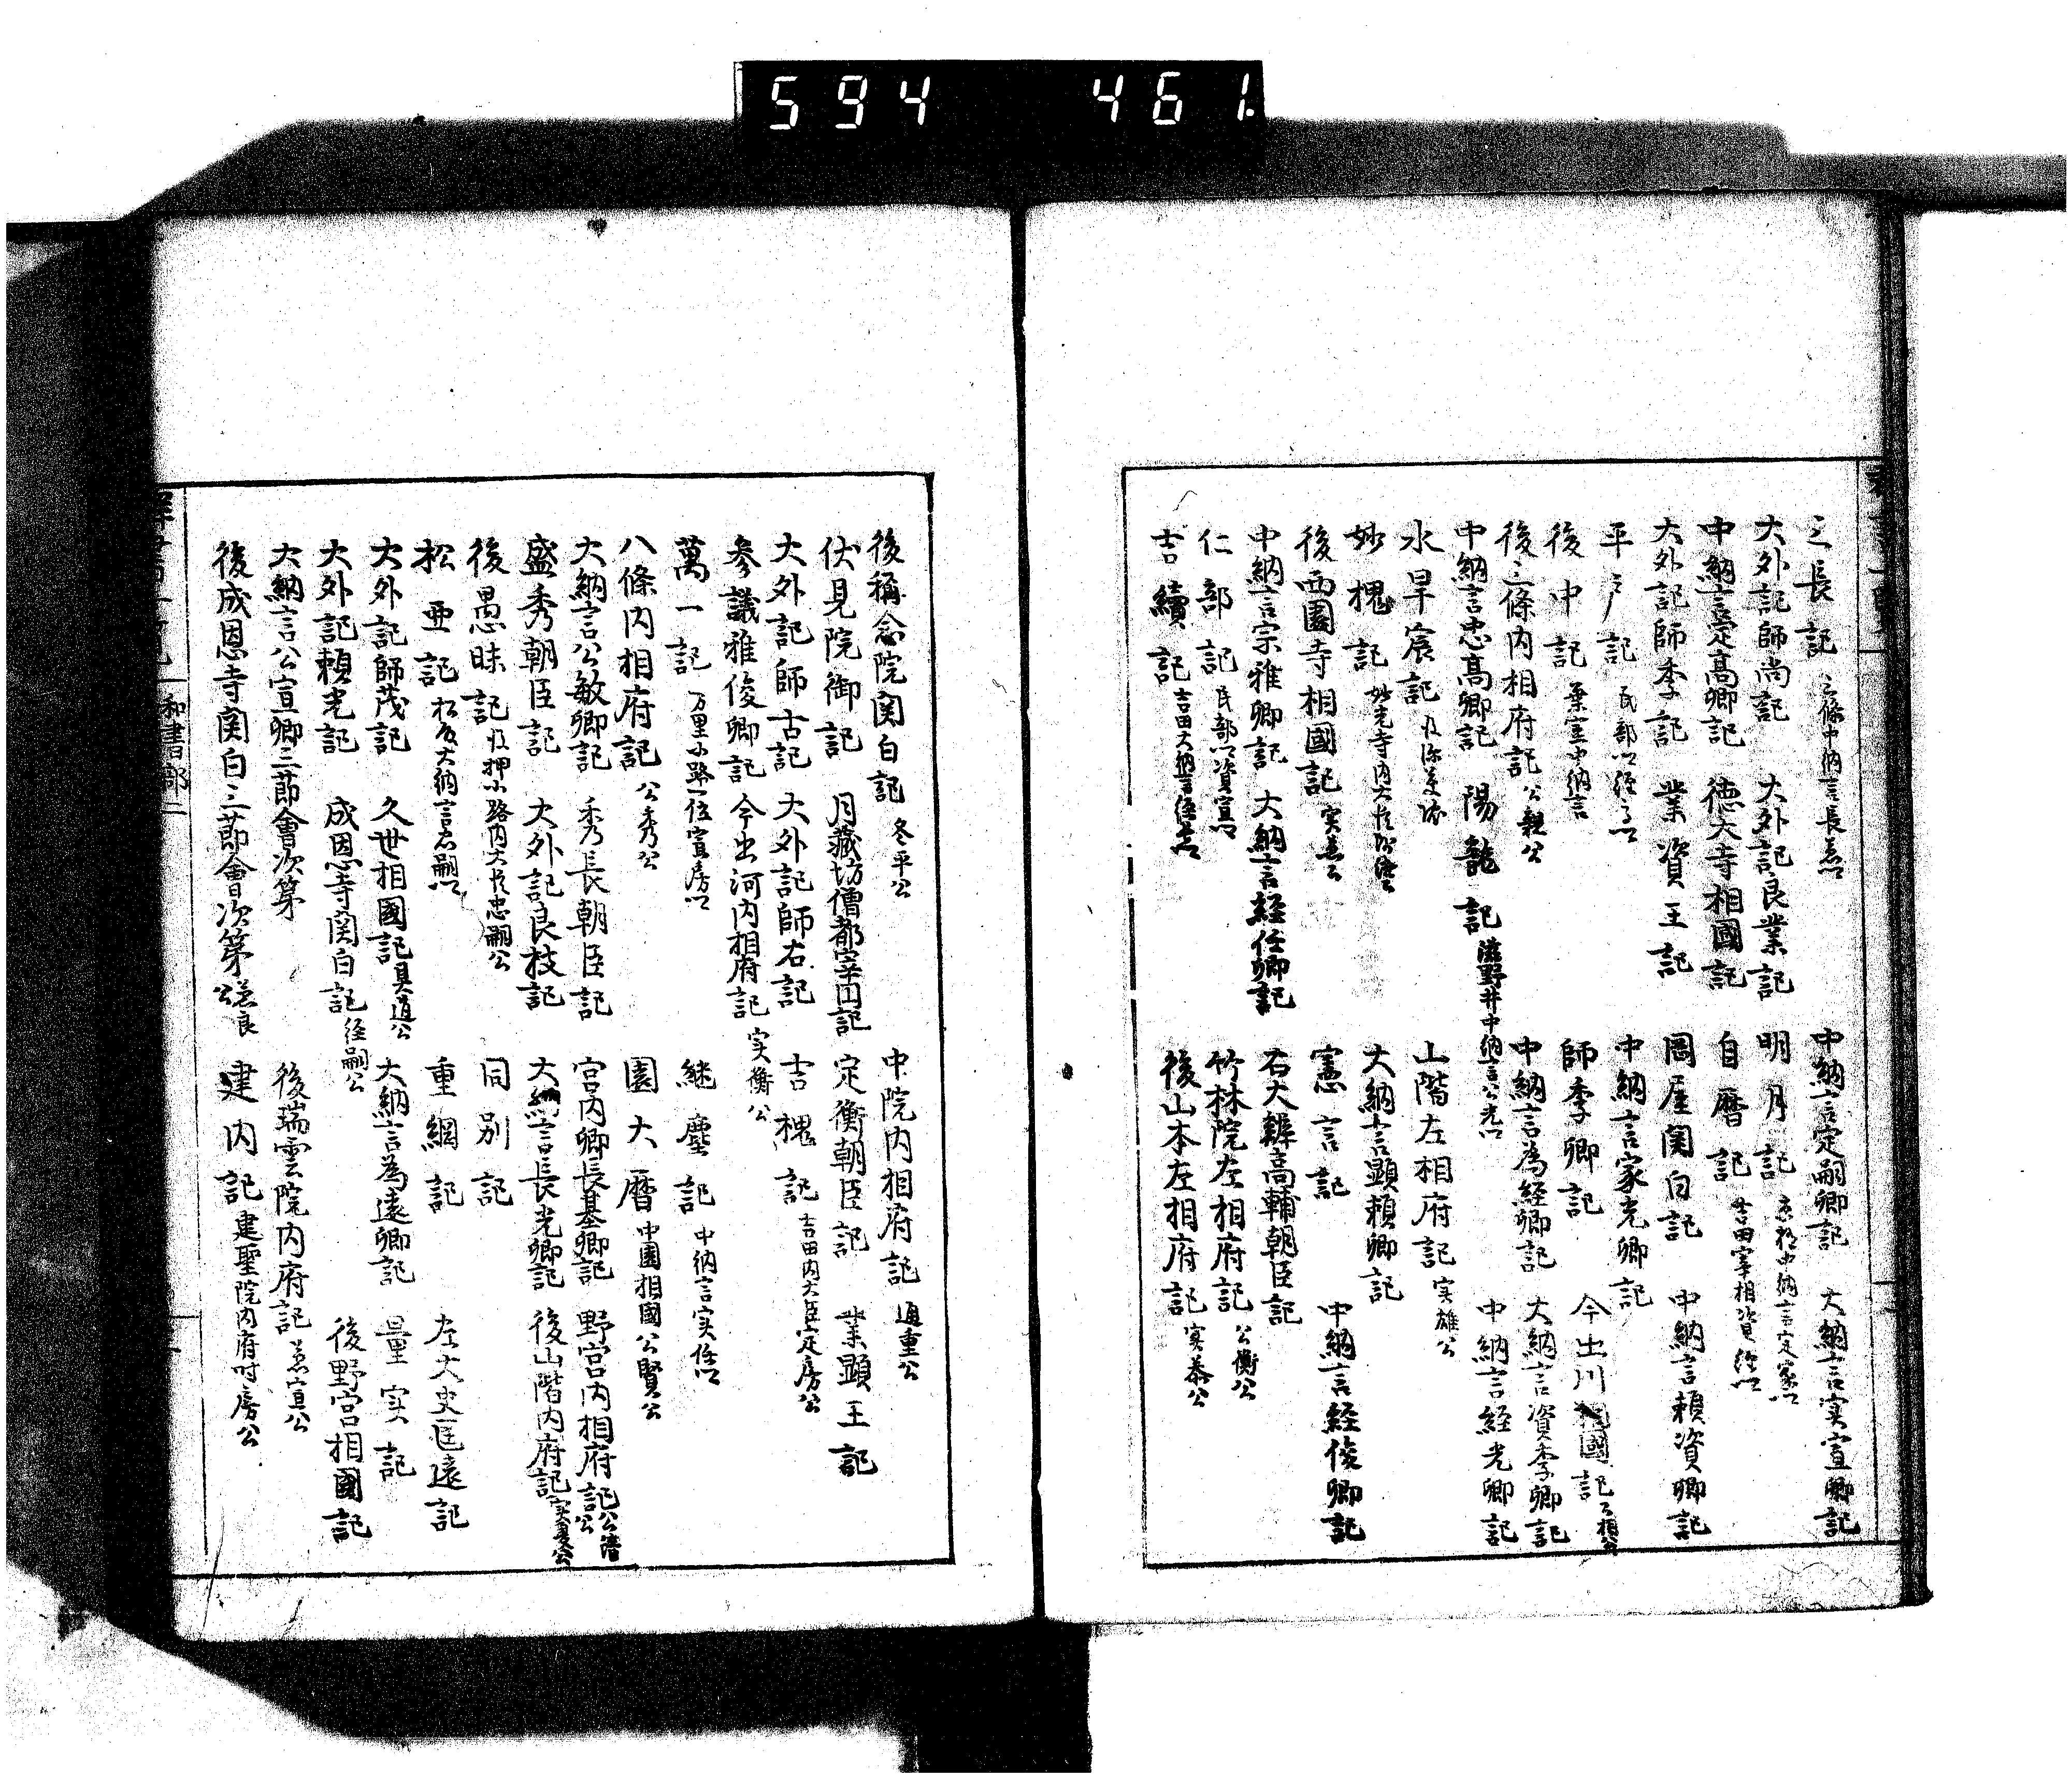 594 461
三長記 三條中納言長兼卿 中納言定嗣卿記 大納言実宣卿記
大外記師尚記 大外記良業記 明月記 京極中納言定家卿
中納言定高卿記 德大寺相國記 自曆記 吉田宰相資経卿
大外記師季記 業資王記 岡屋関白記 中納言頼資卿記
平戸記 民部卿経高卿 中納言家光卿記
後中記 葉室中納言 師季卿記 今出川相國記 公相公
後三條内相府記 公親公 中納言為経卿記 大納言資季卿記
中納言忠高卿記 陽龍記 滋野井中納言公光卿 中納言経光卿記
水旱宸記 山階左相府記 実雄公
妙槐記 妙光寺内大臣 大納言顯頼卿記
後西園寺相國記 実兼公 憲言記 中納言経俊卿記
中納言宗雅卿記 大納言経任卿記 右大辨高輔朝臣記
仁部記 民部卿資宣卿 竹林院左相府記 公衡公
吉續記 吉田大納言経長卿 後山本左相府記 実泰公
後稱念院関白記 冬平公 中院内相府記 通重公
伏見院御記 月藏坊僧都宰円記 定衡朝臣記 業顯王記
大外記師古記 大外記師右記 吉槐記 吉田内大臣定房公
参議雅俊卿記 今出河内相府記 実衡公
萬一記 万里小路一位宣房卿 継塵記 中納言実任卿
八條内相府記 公秀公 園大暦 中園相國公賢公
大納言公敏卿記 秀長朝臣記 宮内卿長基卿記 野宮内相府記 公清公
盛秀朝臣記 大外記良枝記 大納言長光卿記 後山階内府記 実夏公
後愚昧記 後押小路内大臣忠嗣公 同別記
松亜記 松殿大納言忠嗣卿 重綱記 左大史匡遠記
大外記師茂記 久世相國記 具通公 大納言為遠卿記 量実記
大外記頼光記 成因恩寺関白記 経嗣公 後野宮相國記
大納言公宣卿三莭會次第 後瑞雲院内府記 兼宣公
後成恩寺関白三莭會次第 兼良公 建内記 建聖院内府時房公
和書部二